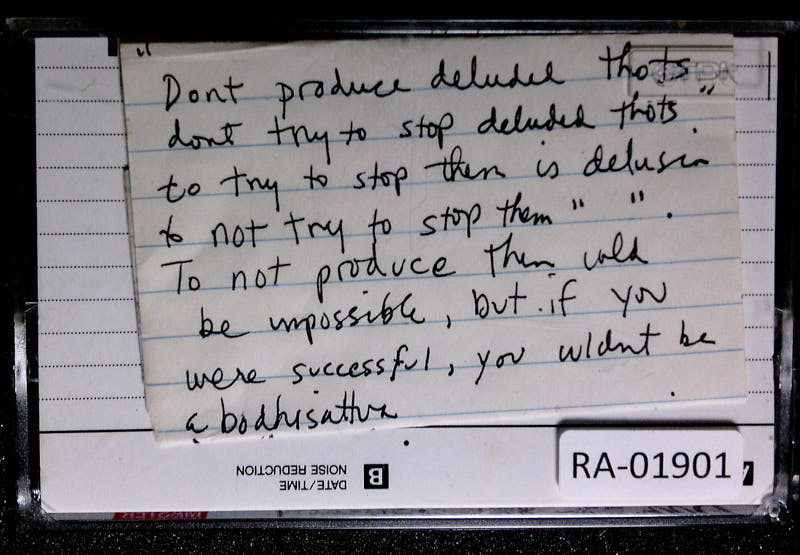 "Dont produce deluded thots
dont try to stop deluded thots."
to try to stop them is delusion
to not try to stop them " ".
To not produce them wld
be impossible, but if you
were successful, you wldnt be
a bodhisattva
RA-01901
B DATE/TIME
NOISE REDUCTION